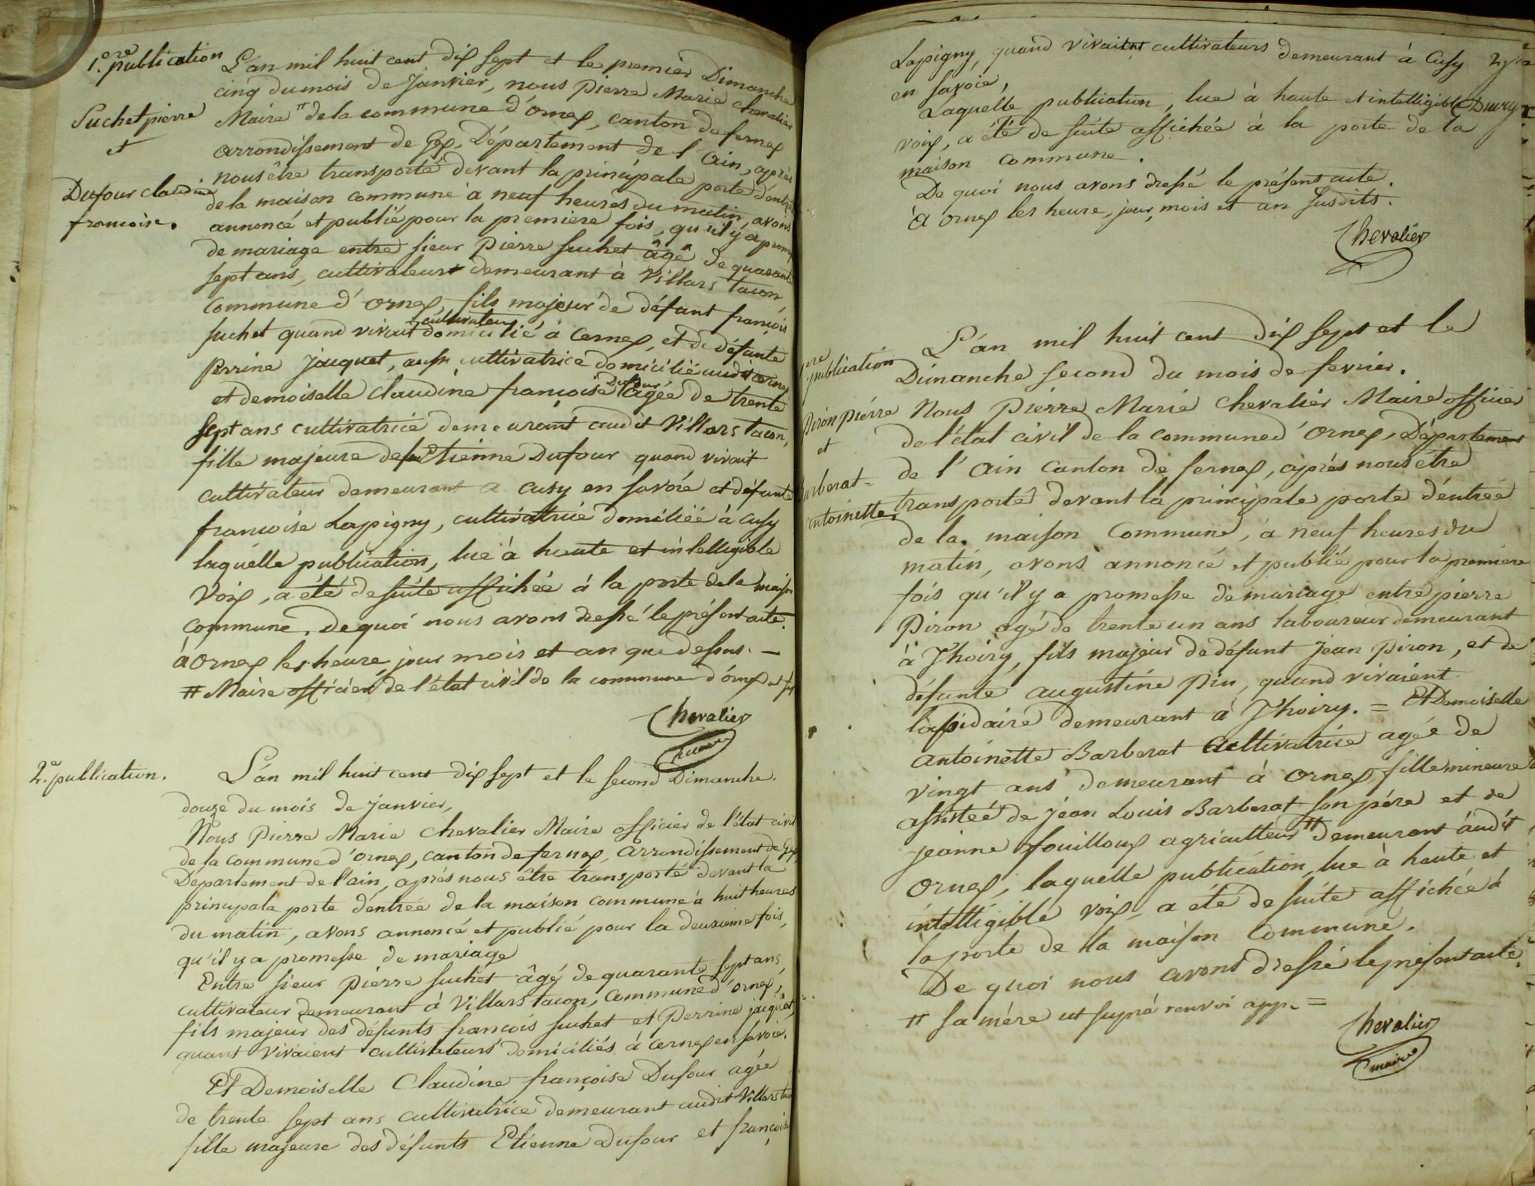 1.ere publication
Suchet pierre
et
Dufour claudine
francoise.
L'an mil huit cent dix sept et le premier Dimanche
cinq du mois de Janvier, nous Pierre Marie chevalier
Maire # de la commune d'ornex, canton de fernex
arrondissement de Gex, Département de l'Ain, après
nous être transporté devant la principale porte d'entrée
de la maison commune à neuf heures du matin, avons
annoncé et publié pour la premiere fois, qu'il y a prom
de mariage entre sieur Pierre Suchet âgé de quarante
sept ans, cultivateur demeurant à Villars tacon,
commune d'ornex, fils majeur de défunt françois
suchet quand vivait cultivateur domicilié à cernex, et de défunte
Perrine Jacquet, aussi cultivatrice domicilié audit cernex
et demoiselle claudine françoise Dufour agée de trente
sept ans cultivatrice demeurant audit Villars tacon,
fille majeure de Etienne Dufour quand vivait
cultivateur demeurant a cusy en Savoie et défunte
francoise Lapigny, cultivatrice domiliée à cusy
laquelle publication, lue à haute et intelligible
voix, a été de suite affichée à la porte de la maison
commune. De quoi nous avons dressé le présent acte.
à Ornex les heure, jour mois et an que dessus. —
# Maire officier de l'état civil de la commune d'ornex
Chevalier
maire
2.e publication.
L'an mil huit cent dix sept et le second Dimanche.
douze du mois de Janvier,
Nous Pierre Marie Chevalier Maire officier de l'état civil
de la commune d'ornex, canton de fernex, arrondissement de Gex
Departement de l'ain, aprés nous être transporté devant la
principale porte d'entrée de la maison commune à huit heures
du matin, avons annoncé et publié pour la deuxieme fois,
qu'il y a promesse de mariage
Entre sieur pierre Suchet âgé de quarante sept ans,
cultivateur demeurant à Villars tacon, commune d'ornex,
fils majeur des défunts francois Suchet et Perrine jacquet,
quant vivaient cultivateurs domiciliés à cernex en Savoie.
Et Demoiselle Claudine françoise Dufour agée
de trente sept ans cultivatrice demeurant audit Villars
fille majeure des défunts Etienne Dufour et françoise
Lapigny, quand vivaient cultivateurs demeurant à Cusy
en Savoie,
Laquelle publication, lue à haute et intelligible
voix, a été de suite affichée à la porte de la
maison commune.
De quoi nous avons dressé le présent acte.
à ornex les heure, jour, mois et an susdits.
Chevalier
Ducry
1ere publication
Piron pierre
et
Barberat
antoinette
L'an mil huit cent dix sept et le
Dimanche second du mois de fevrier.
Nous Pierre Marie Chevalier Maire officier
de l'état civil de la commune d'ornex, Département
de l'Ain canton de fernex, après nous être
transporté devant la principale porte d'entrée
de la maison commune, à neuf heures du
matin, avons annoncé et publié pour la premiere
fois qu'il y a promesse de mariage entre pierre
Piron agé de trente un ans laboureur demeurant
à Thoiry, fils majeur de défunt jean Piron, et de
défunte augustine Piu, quand vivaient
lapidaire demeurant à Thoiry. = Et Demoiselle
antoinette Barberat cultivatrice agée de
vingt ans demeurant à ornex, fille mineure
assistée de jean Louis Barberat son père et de
jeanne fouilloux agriculteur # demeurant audit
ornex, laquelle publication, lue à haute et
intelligible voix, a été de suite affichée à
la porte de la maison commune.
De quoi nous avons dressé le présent acte.
# sa mère ut supra renvoi app. =
Chevalier
maire